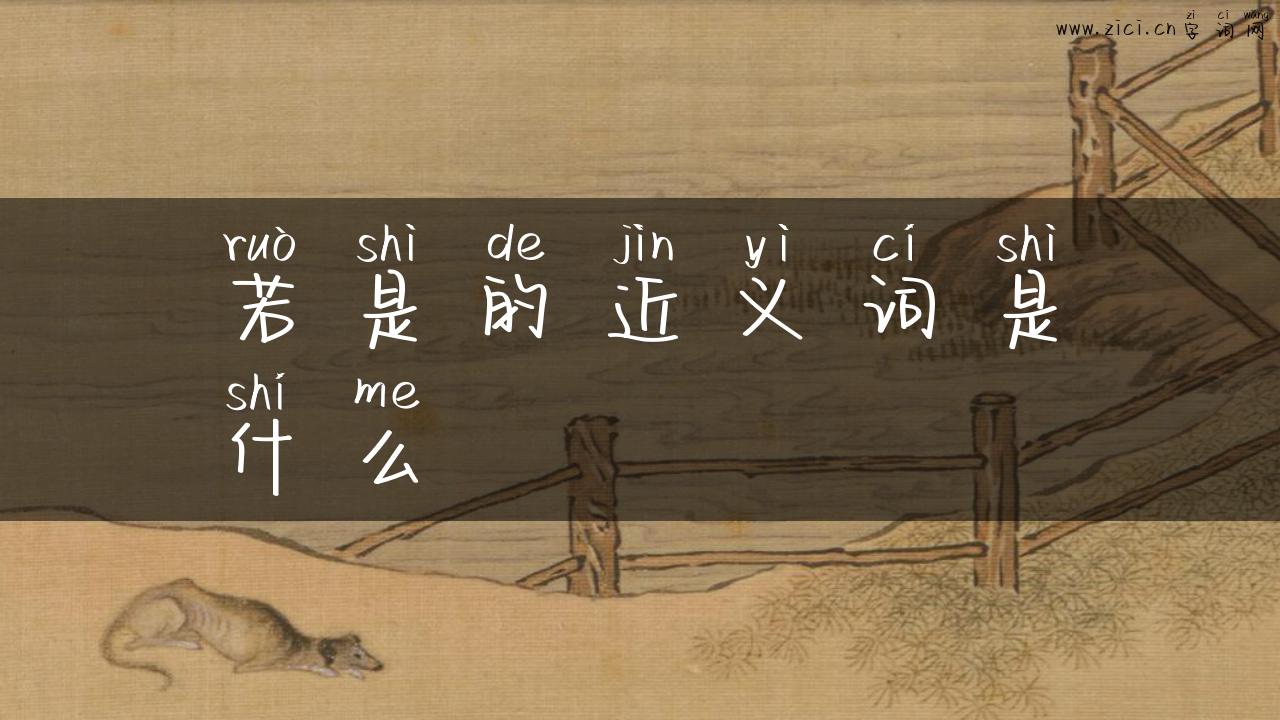 zi ci wang
www.zici.cn 字词网
ruò shì de jìn yì cí shì
若是的近义词是
shí me
什么